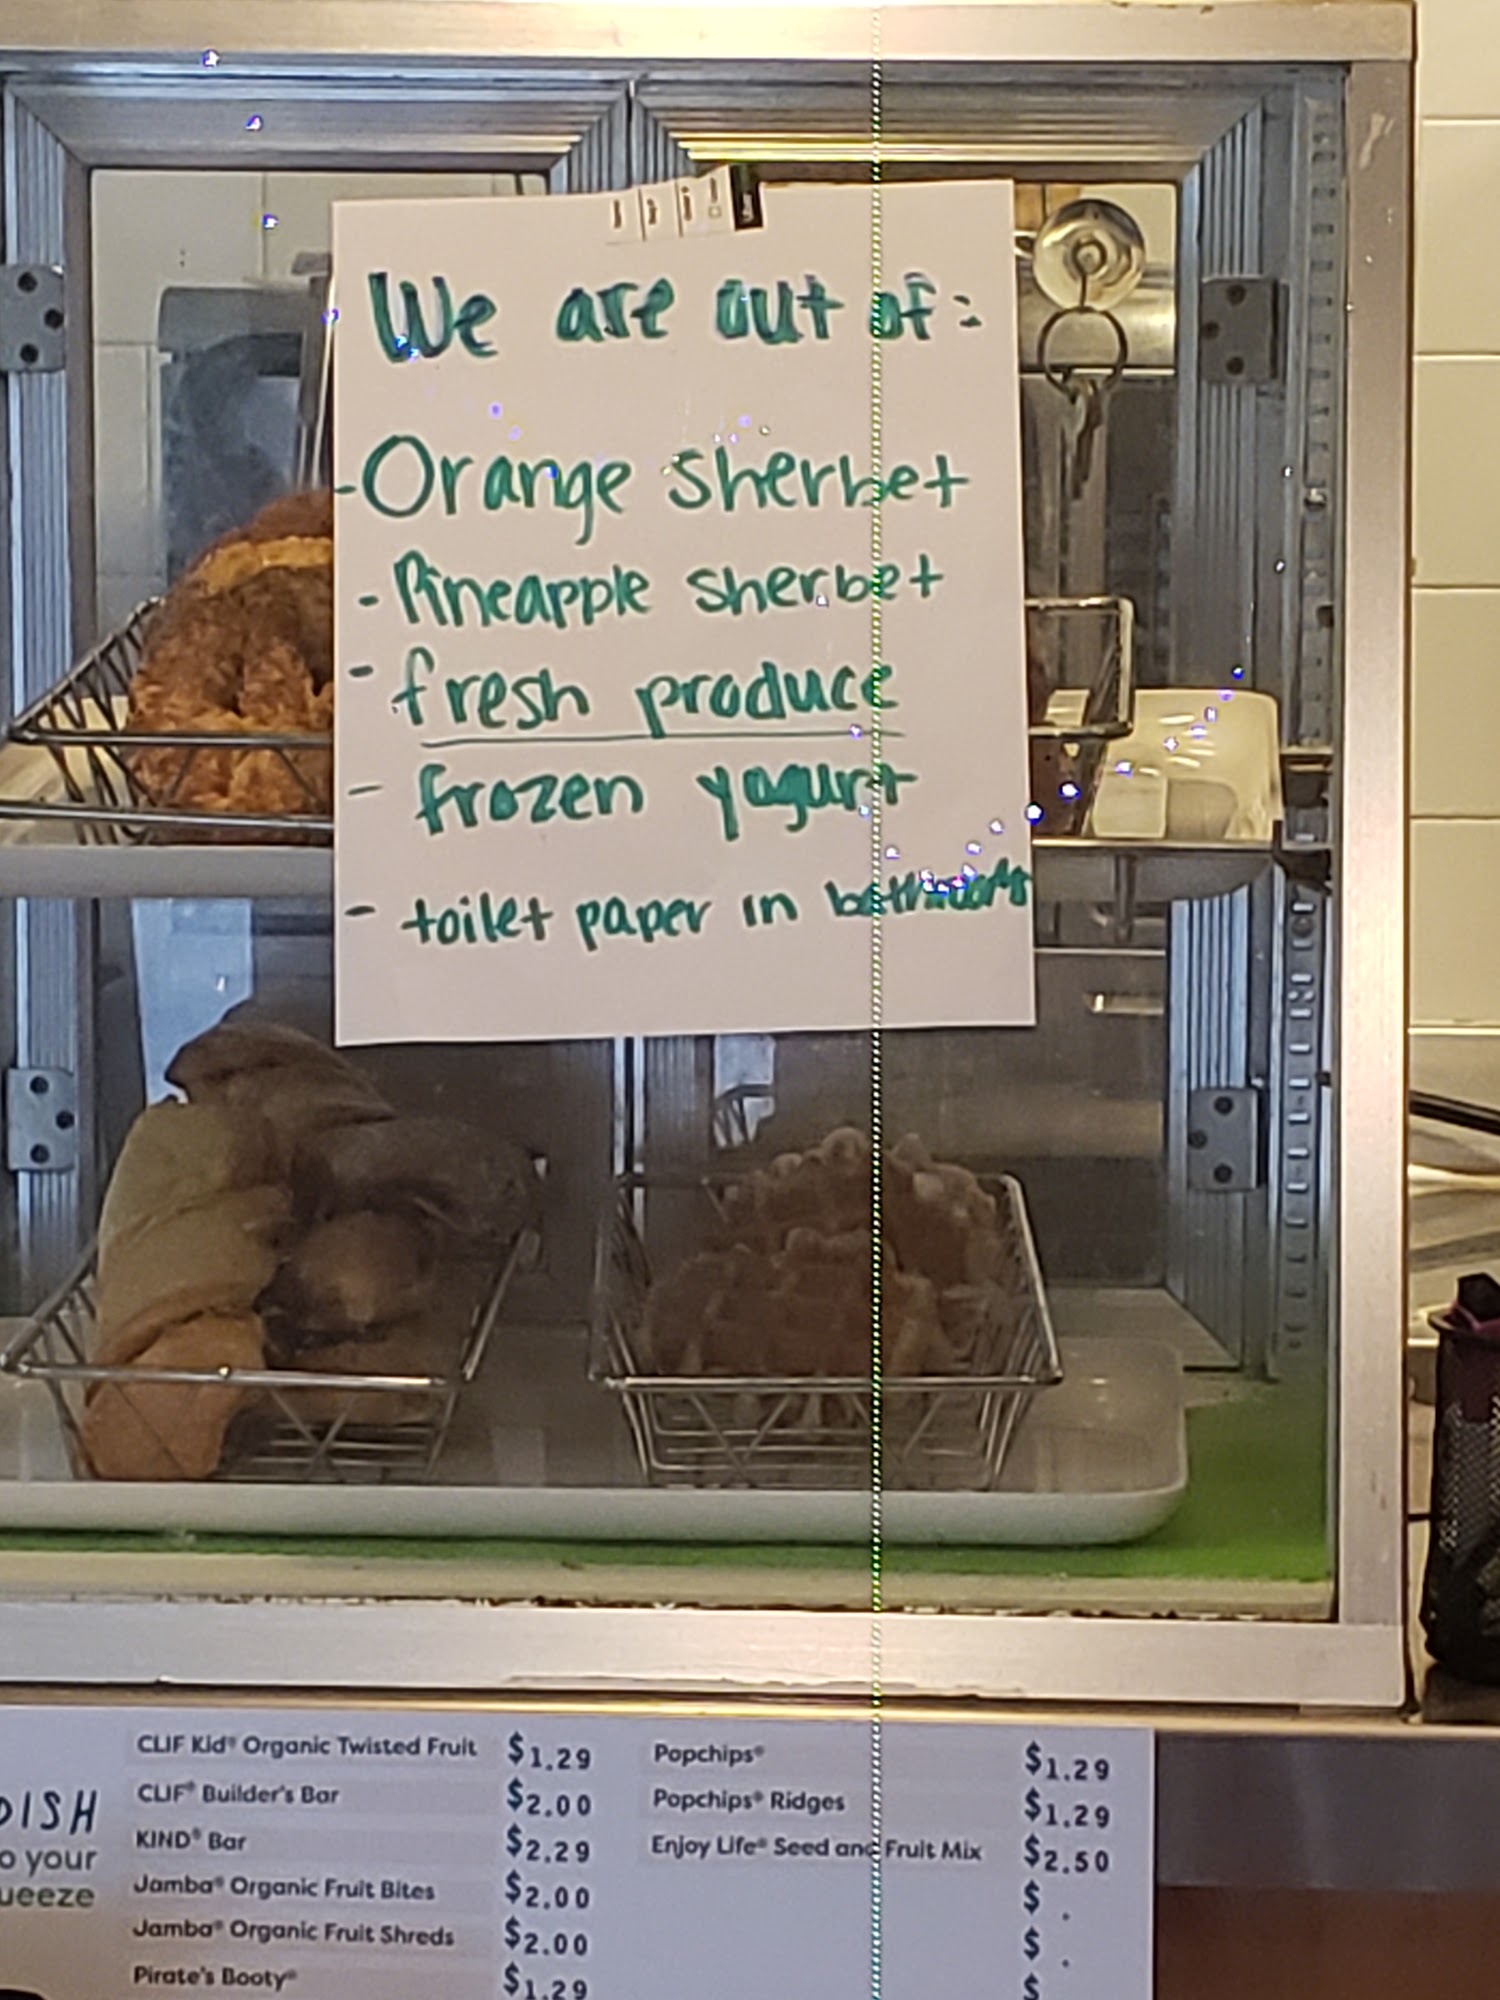 We are out of:
- Orange sherbet
- Pineapple sherbet
- fresh produce
- frozen yogurt
- toilet paper in bathrooms
DISH
o your
ueeze
CLIF Kid® Organic Twisted Fruit $1.29
CLIF® Builder's Bar $2.00
KIND® Bar $2.29
Jamba® Organic Fruit Bites $2.00
Jamba® Organic Fruit Shreds $2.00
Pirate's Booty® $1.29
Popchips® $1.29
Popchips® Ridges $1.29
Enjoy Life® Seed and Fruit Mix $2.50
$ .
$ .
$